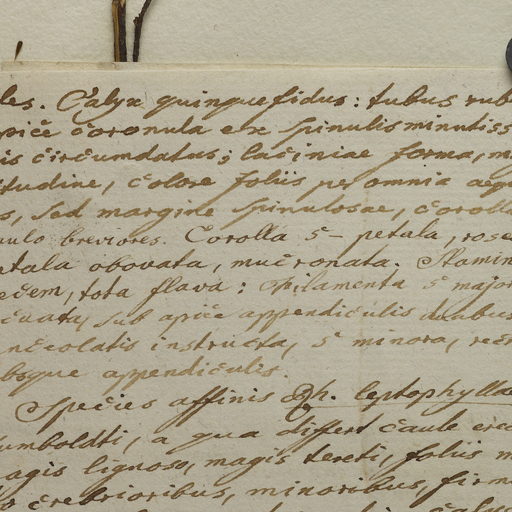 les. Calyx quinquefidus: tubus rube
apice coronula ex spinulis minutiss
is circumdatus; laciniae forma, ma
itudine, colore foliis per omnia aequ
s, sed margine spinulosae, corolla
aulo breviores. Corolla 5-petala, rosea
etala obovata, mucronata. Stamin
ecem, tota flava: filamenta 5 major
sub apice appendiculis duabus
anceolatis instructa, 5 minora, rect
bsque appendiculis.
Species affinis Rh. leptophyllae
Humboldti, a qua differt caule erec
agis lignoso, magis tereti, foliis m
o crebrioribus, minoribus, firm